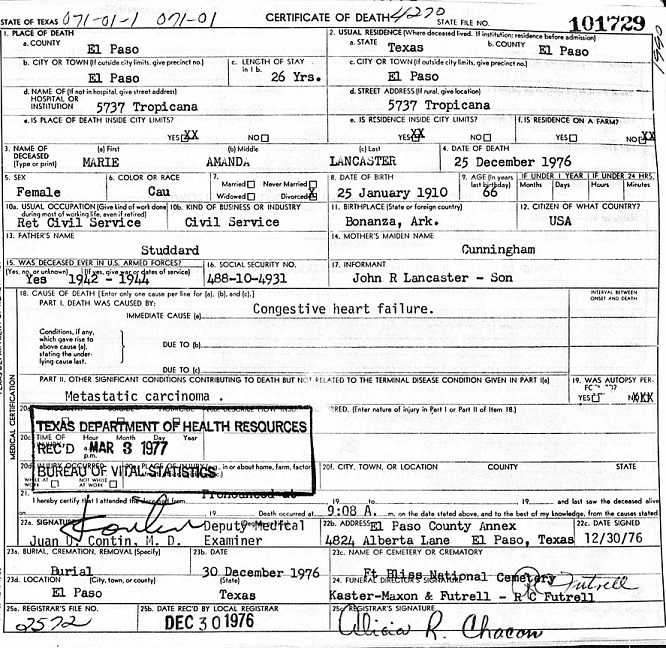 STATE OF TEXAS 071-01-1 071-01 CERTIFICATE OF DEATH 46270 STATE FILE NO. 101729
1. PLACE OF DEATH 2. USUAL RESIDENCE (Where deceased lived. If institution: residence before admission)
a. COUNTY El Paso a. STATE Texas b. COUNTY El Paso
b. CITY OR TOWN (If outside city limits, give precinct no.) c. LENGTH OF STAY in 1 b. c. CITY OR TOWN (If outside city limits, give precinct no.)
El Paso 26 Yrs. El Paso
d. NAME OF (If not in hospital, give street address) d. STREET ADDRESS (If rural, give location)
HOSPITAL OR
INSTITUTION 5737 Tropicana 5737 Tropicana
e. IS PLACE OF DEATH INSIDE CITY LIMITS? e. IS RESIDENCE INSIDE CITY LIMITS? f. IS RESIDENCE ON A FARM?
YES XX NO YES XX NO YES NO XX
3. NAME OF DECEASED (Type or print) (a) First (b) Middle (c) Last 4. DATE OF DEATH
MARIE AMANDA LANCASTER 25 December 1976
5. SEX 6. COLOR OR RACE 7. Married Never Married 8. DATE OF BIRTH 9. AGE (In years last birthday) IF UNDER 1 YEAR IF UNDER 24 HRS.
Months Days Hours Minutes
Female Cau Widowed Divorced X 25 January 1910 66
10a. USUAL OCCUPATION (Give kind of work done during most of working life, even if retired) 10b. KIND OF BUSINESS OR INDUSTRY 11. BIRTHPLACE (State or foreign country) 12. CITIZEN OF WHAT COUNTRY?
Ret Civil Service Civil Service Bonanza, Ark. USA
13. FATHER'S NAME 14. MOTHER'S MAIDEN NAME
Studdard Cunningham
15. WAS DECEASED EVER IN U.S. ARMED FORCES? 16. SOCIAL SECURITY NO. 17. INFORMANT
(Yes, no, or unknown) (If yes, give war or dates of service)
Yes 1942 - 1944 488-10-4931 John R Lancaster - Son
18. CAUSE OF DEATH [Enter only one cause per line for (a), (b), and (c).] INTERVAL BETWEEN ONSET AND DEATH
PART I. DEATH WAS CAUSED BY:
IMMEDIATE CAUSE (a) Congestive heart failure.
Conditions, if any,
which gave rise to
above cause (a),
stating the under-
lying cause last.
DUE TO (b)
DUE TO (c)
PART II. OTHER SIGNIFICANT CONDITIONS CONTRIBUTING TO DEATH BUT NOT RELATED TO THE TERMINAL DISEASE CONDITION GIVEN IN PART I(a) 19. WAS AUTOPSY PER-
Metastatic carcinoma . YES NO XX
MEDICAL CERTIFICATION
(Enter nature of injury in Part I or Part II of Item 18.)
TEXAS DEPARTMENT OF HEALTH RESOURCES
REC'D MAR 3 1977
BUREAU OF VITAL STATISTICS
20c. TIME OF Hour Month Day Year
p.m.
20d. INJURY OCCURRED PLACE OF INJURY in or about home, farm, factory 20f. CITY, TOWN, OR LOCATION COUNTY STATE
WHILE AT WORK NOT WHILE AT WORK
21. Pronounced at
I hereby certify that I attended the deceased from 19 to 19 and last saw the deceased alive
on 19 Death occurred at 9:08 A. m. on the date stated above, and to the best of my knowledge, from the causes stated.
22a. SIGNATURE Deputy Medical 22b. ADDRESS El Paso County Annex 22c. DATE SIGNED
Juan U. Contin, M. D. Examiner 4824 Alberta Lane El Paso, Texas 12/30/76
23a. BURIAL, CREMATION, REMOVAL (Specify) 23b. DATE 23c. NAME OF CEMETERY OR CREMATORY
Burial 30 December 1976 Ft Bliss National Cemetery
23d. LOCATION (City, town, or county) (State) 24. FUNERAL DIRECTOR'S SIGNATURE R C Futrell
El Paso Texas Kaster-Maxon & Futrell - R C Futrell
25a. REGISTRAR'S FILE NO. 25b. DATE REC'D BY LOCAL REGISTRAR 25c. REGISTRAR'S SIGNATURE
2572 DEC 30 1976 Alicia R. Chacon